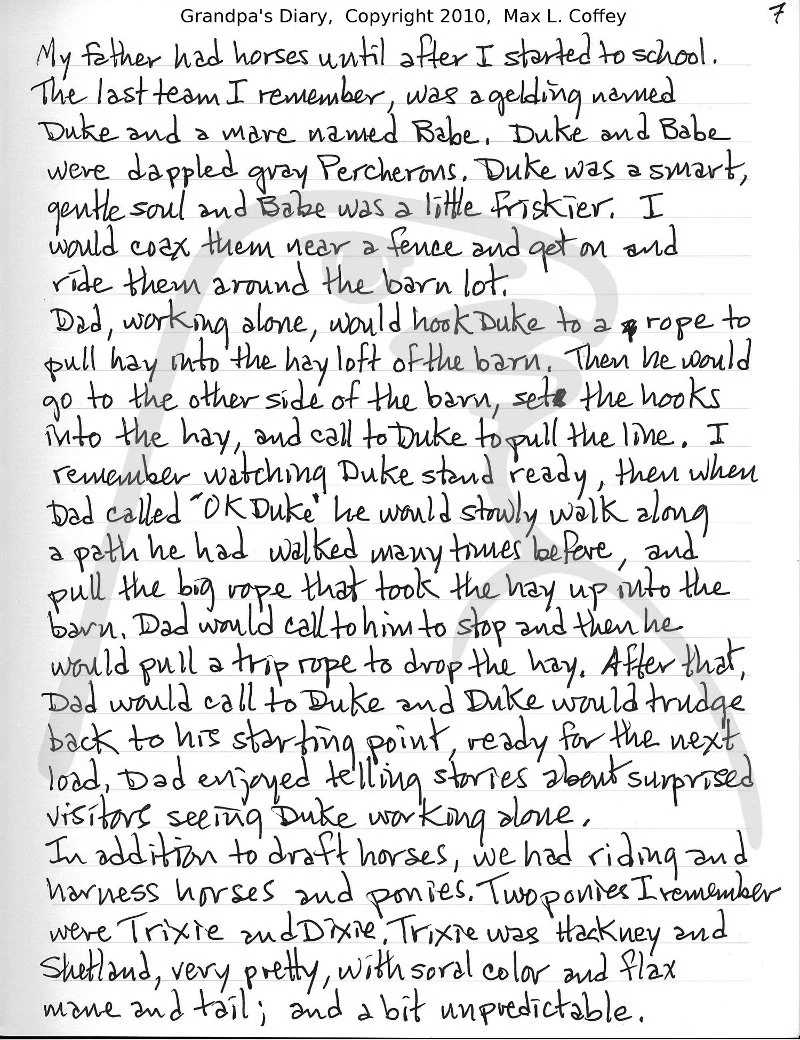 Grandpa's Diary, Copyright 2010, Max L. Coffey
7
My father had horses until after I started to school.
The last team I remember, was a gelding named
Duke and a mare named Babe. Duke and Babe
were dappled gray Percherons. Duke was a smart,
gentle soul and Babe was a little friskier. I
would coax them near a fence and get on and
ride them around the barn lot.
Dad, working alone, would hook Duke to a rope to
pull hay into the hay loft of the barn. Then he would
go to the other side of the barn, set the hooks
into the hay, and call to Duke to pull the line. I
remember watching Duke stand ready, then when
Dad called "OK Duke" he would slowly walk along
a path he had walked many times before, and
pull the big rope that took the hay up into the
barn. Dad would call to him to stop and then he
would pull a trip rope to drop the hay. After that,
Dad would call to Duke and Duke would trudge
back to his starting point, ready for the next
load. Dad enjoyed telling stories about surprised
visitors seeing Duke working alone.
In addition to draft horses, we had riding and
harness horses and ponies. Two ponies I remember
were Trixie and Dixie. Trixie was Hackney and
Shetland, very pretty, with soral color and flax
mane and tail; and a bit unpredictable.